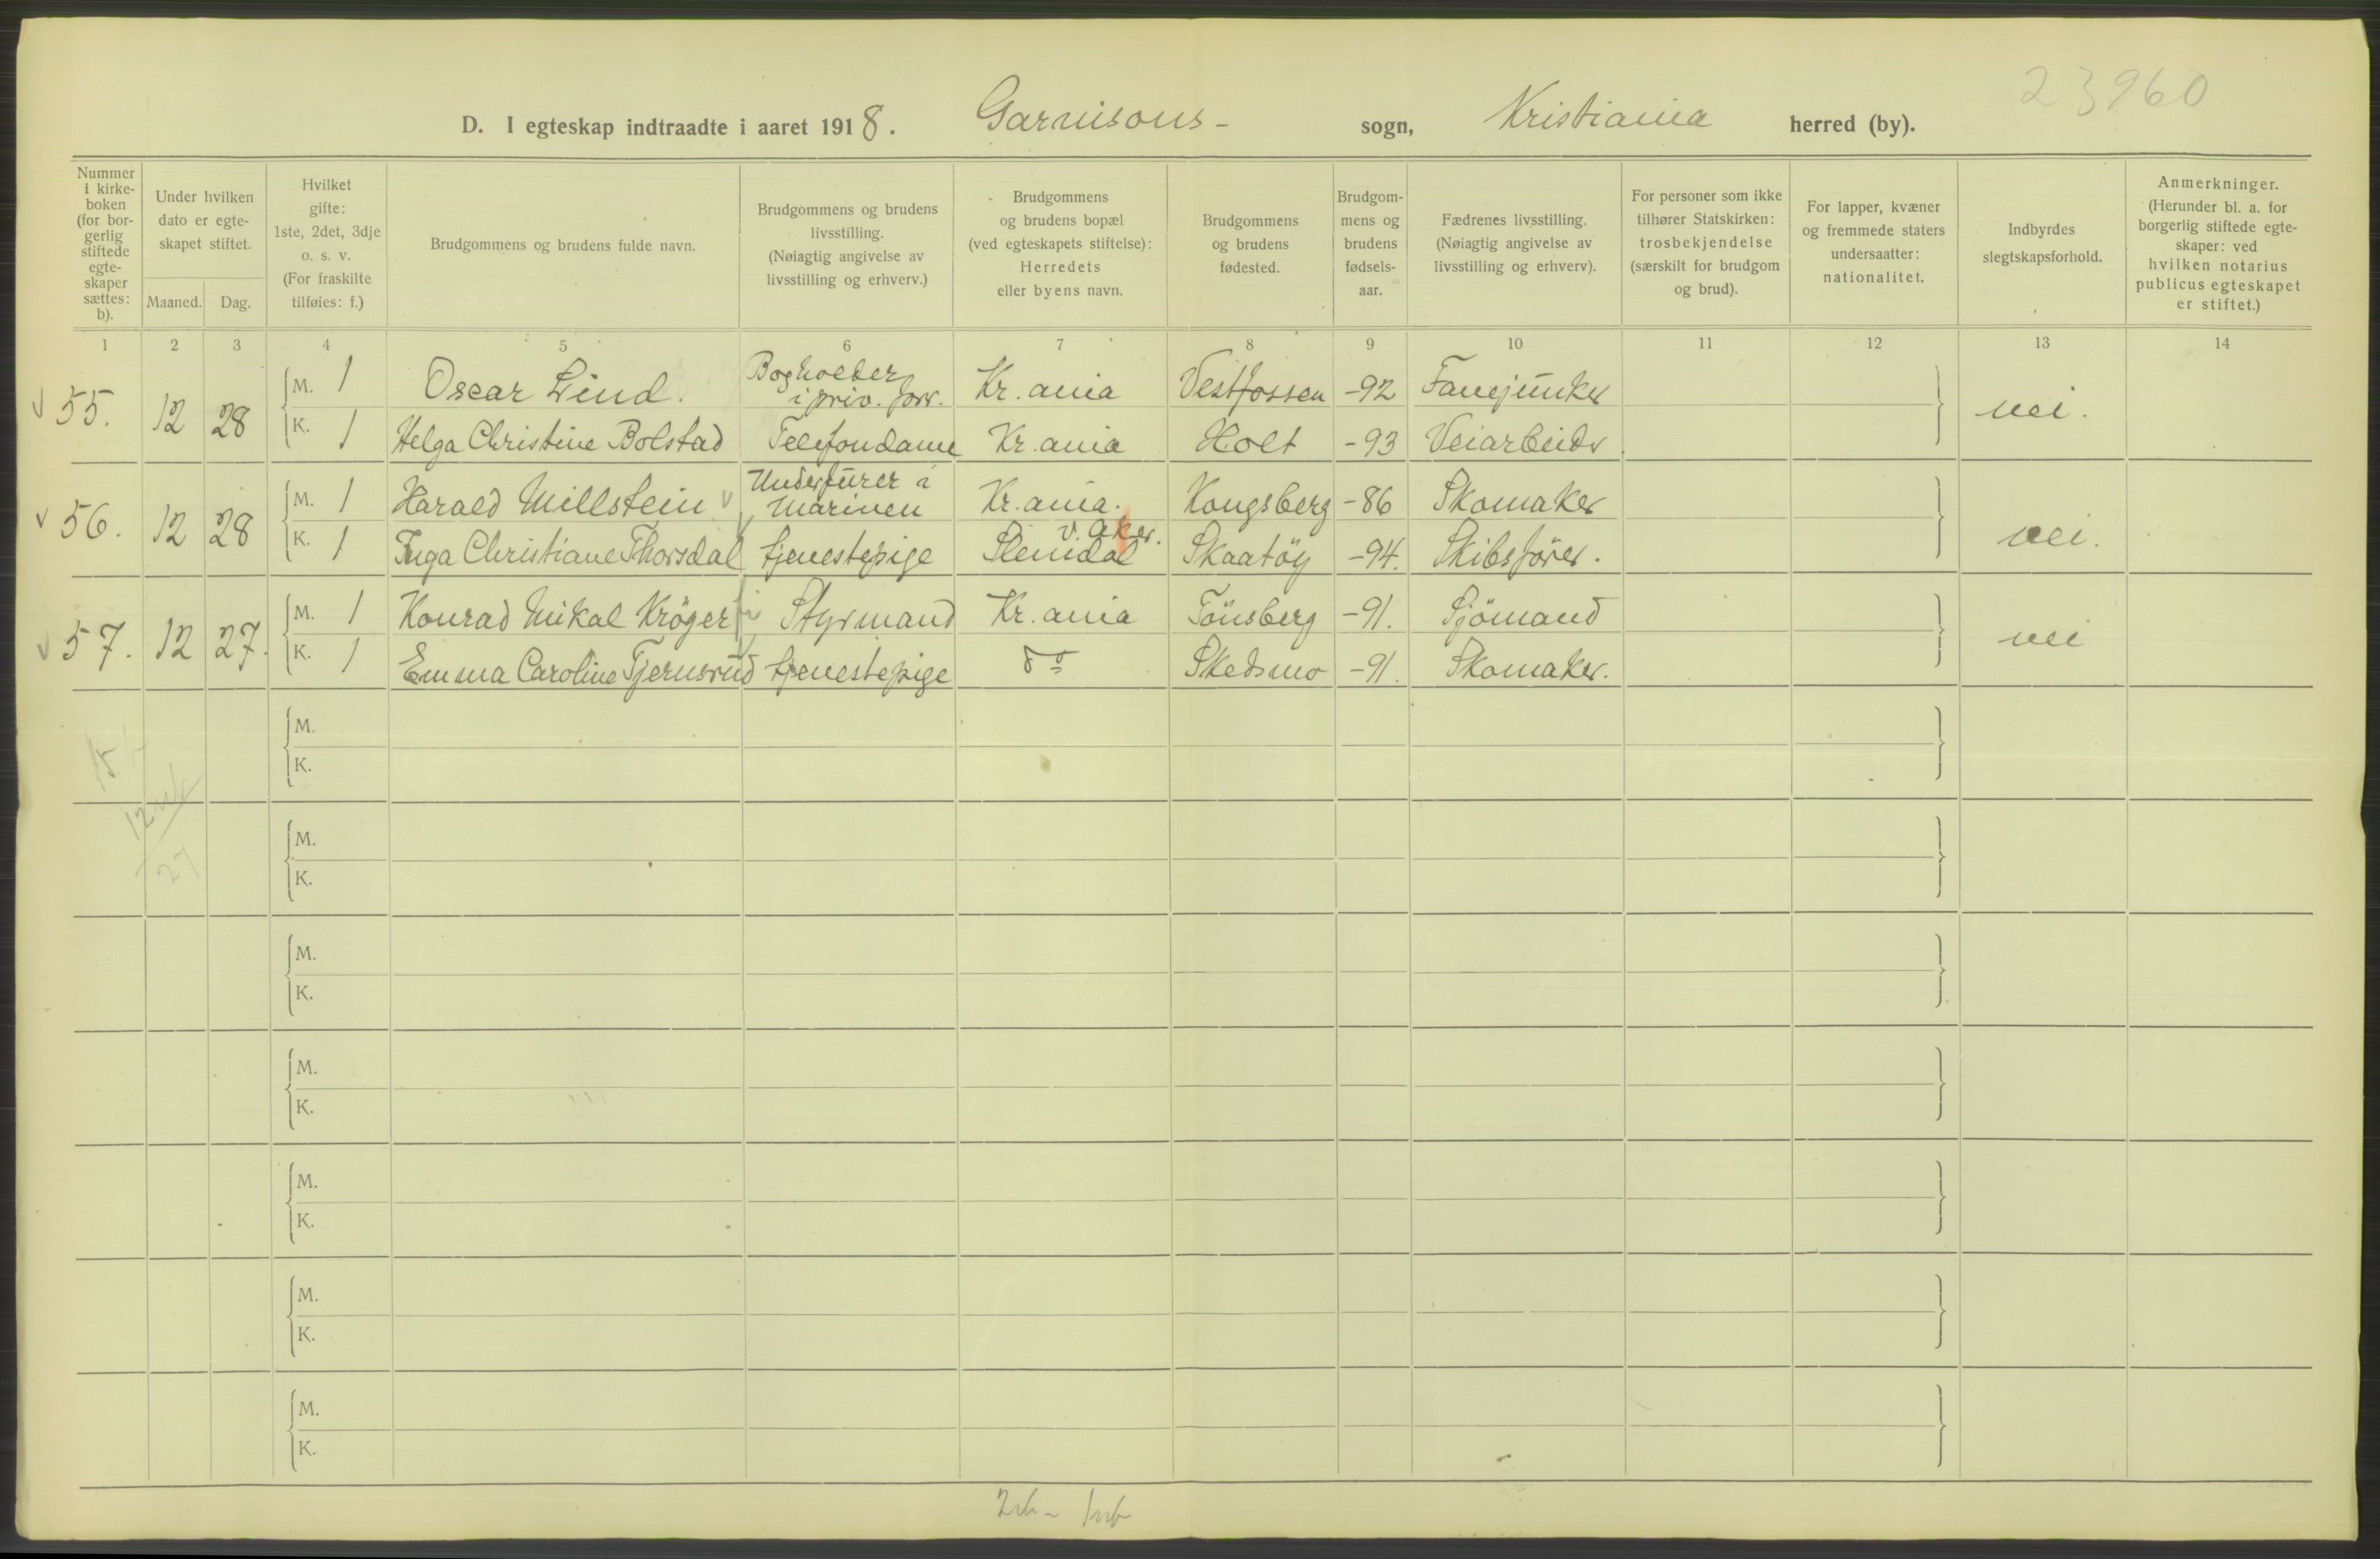 23960
D. I egteskap indtraadte i aaret 1918. Garnisons- sogn, Kristiania herred (by).
Nummer i kirke-boken (for bor-gerlig stiftede egte-skaper sættes: b).
Under hvilken dato er egte-skapet stiftet.
Maaned. Dag.
Hvilket gifte: 1ste, 2det, 3dje o. s. v. (For fraskilte tilføies: f.)
Brudgommens og brudens fulde navn.
Brudgommens og brudens livsstilling. (Nøiagtig angivelse av livsstilling og erhverv.)
Brudgommens og brudens bopæl (ved egteskapets stiftelse): Herredets eller byens navn.
Brudgommens og brudens fødested.
Brudgom-mens og brudens fødsels-aar.
Fædrenes livsstilling. (Nøiagtig angivelse av livsstilling og erhverv).
For personer som ikke tilhører Statskirken: trosbekjendelse (særskilt for brudgom og brud).
For lapper, kvæner og fremmede staters undersaatter: nationalitet.
Indbyrdes slegtskapsforhold.
Anmerkninger. (Herunder bl. a. for borgerlig stiftede egte-skaper: ved hvilken notarius publicus egteskapet er stiftet.)
1 2 3 4 5 6 7 8 9 10 11 12 13 14
55. 12 28 M. 1 Oscar Lind. Bogholder i priv. forr. Kr.ania Vestfossen -92 Fanejunker nei.
K. 1 Helga Christine Bolstad Telefondame Kr.ania Holt -93 Veiarbeidr
56. 12 28 M. 1 Harald Millstein Underfurer i Marinen Kr.ania. Kongsberg -86 Skomaker nei.
K. 1 Inga Christiane Thorsdal tjenestepige Slemdal v. Aker. Skaatöy -94. Skibsförer.
57. 12 27. M. 1 Konrad Mikal Kröger Styrmand Kr.ania Tönsberg -91. Sjömand nei
K. 1 Emma Caroline Tjernsrud tjenestepige do Skedsmo -91. Skomaker.
M.
K.
M.
K.
27
M.
K.
M.
K.
M.
K.
M.
K.
M.
K.